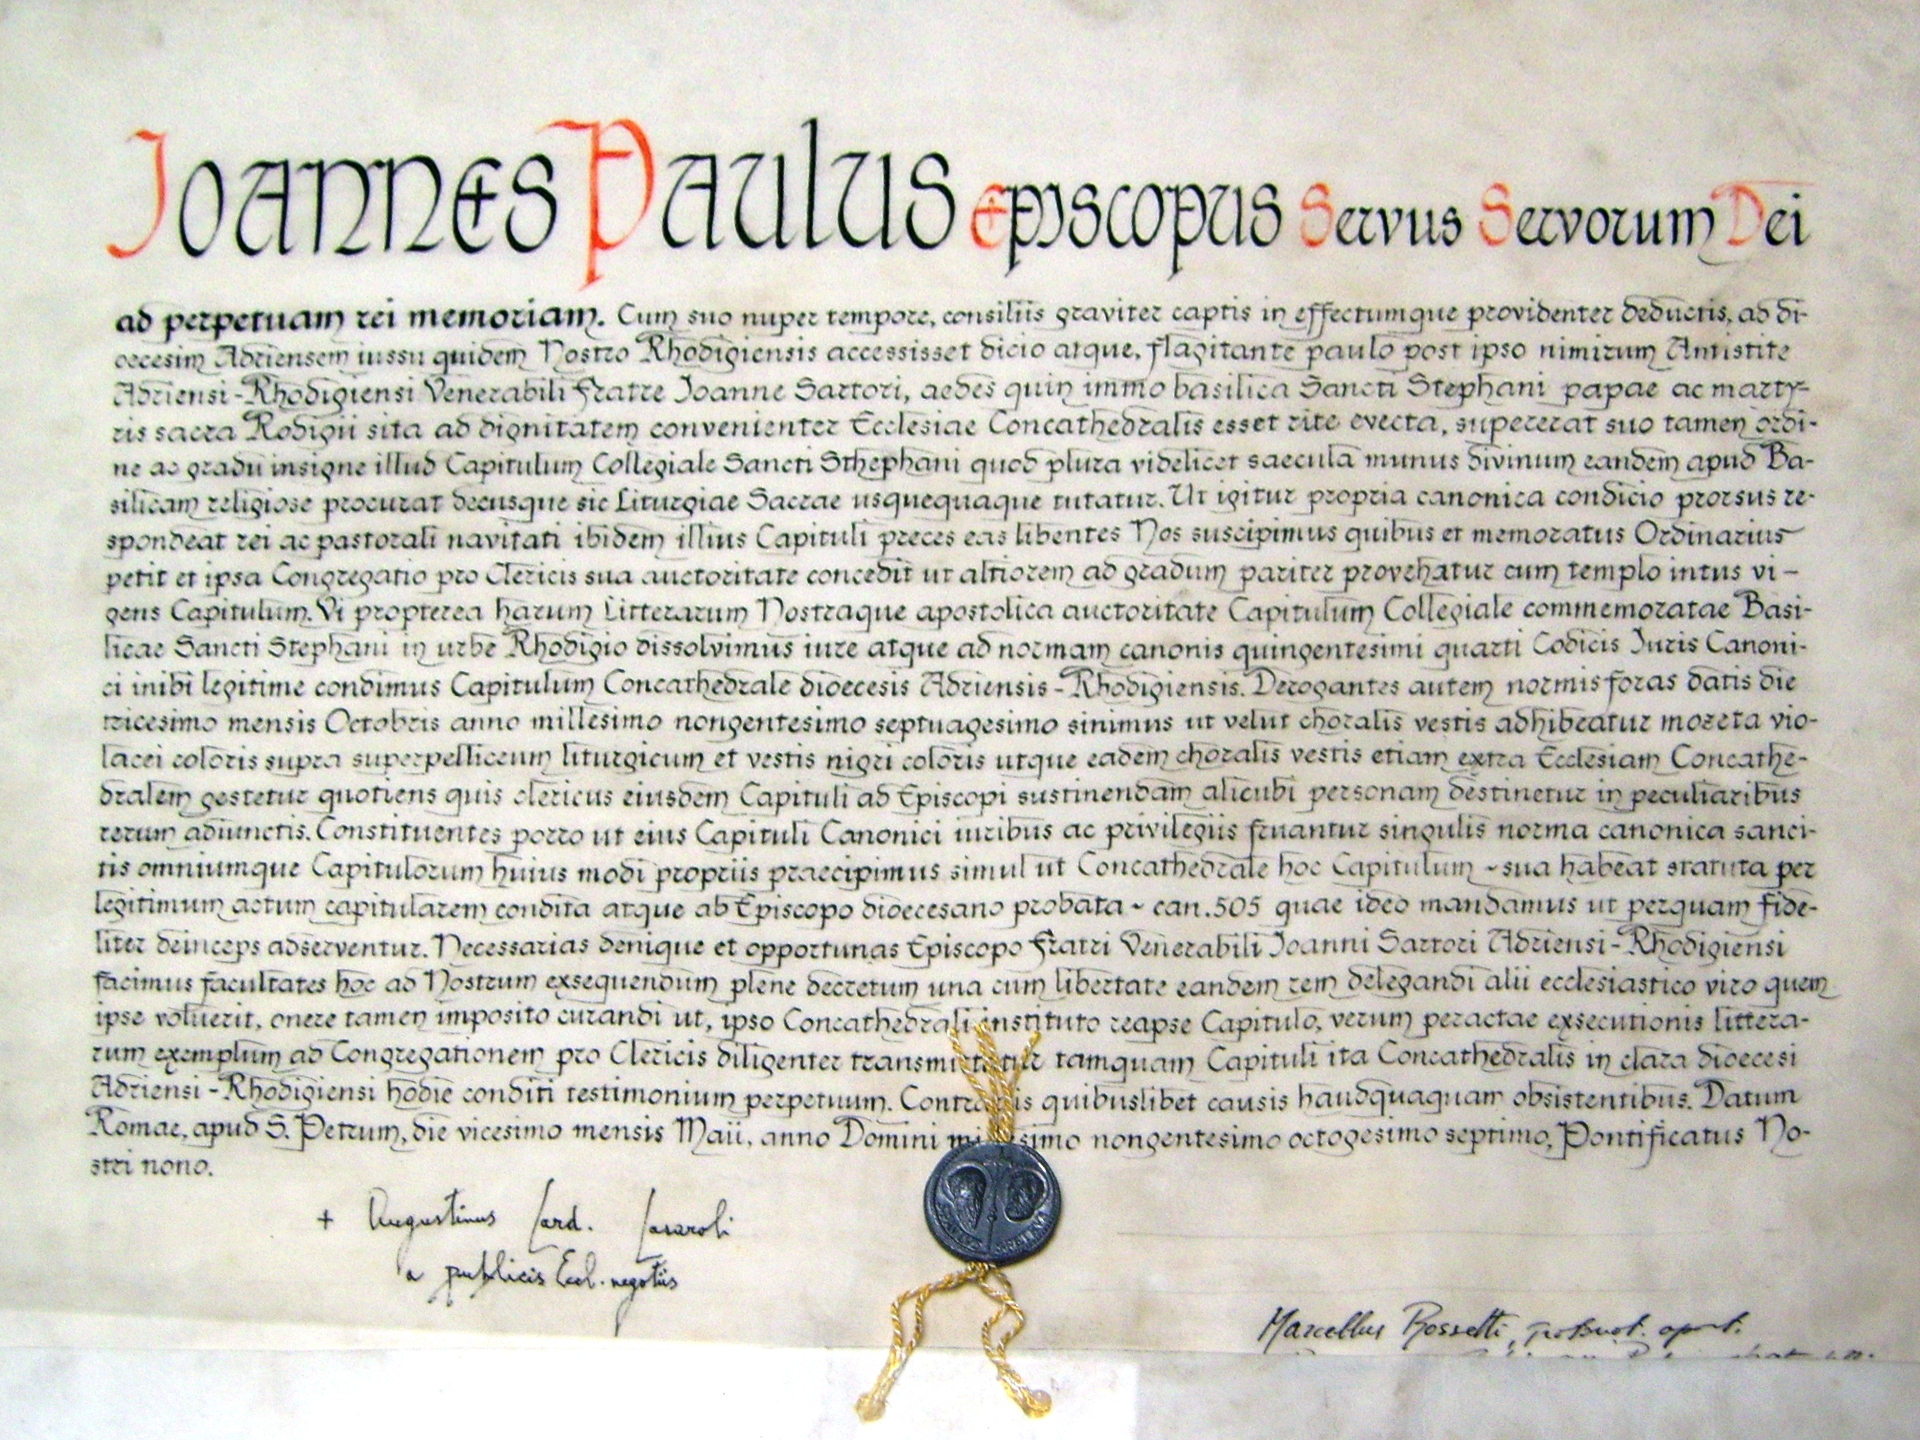 Joannes Paulus Episcopus Servus Servorum Dei
ad perpetuam rei memoriam. Cum suo nuper tempore, consiliis graviter captis in effectumque providenter deductis, ad di-
oecesim Adriensem iussu quidem Nostro Rhodigiensis accessisset dicio atque, flagitante paulo post ipso nimirum Antistite
Adriensi-Rhodigiensi Venerabili Fratre Joanne Sartori, aedes quin immo basilica Sancti Stephani papae ac marty-
ris sacra Rodigii sita ad dignitatem convenienter Ecclesiae Concathedralis esset rite evecta, supererat suo tamen ordi-
ne ac gradu insigne illud Capitulum Collegiale Sancti Sthephani quod plura videlicet saecula munus divinum eandem apud Ba-
silicam religiose procurat decusque sic Liturgiae Sacrae usquequaque tutatur. Ut igitur propria canonica condicio prorsus re-
spondeat rei ac pastorali navitati ibidem illius Capituli preces eas libentes Nos suscipimus quibus et memoratus Ordinarius
petit et ipsa Congregatio pro Clericis sua auctoritate concedit ut altiorem ad gradum pariter provehatur cum templo intus vi-
gens Capitulum. Vi propterea harum Litterarum Nostraque apostolica auctoritate Capitulum Collegiale commemoratae Basi-
licae Sancti Stephani in urbe Rhodigio dissolvimus iure atque ad normam canonis quingentesimi quarti Codicis Juris Canoni-
ci inibi legitime condimus Capitulum Concathedrale dioecesis Adriensis-Rhodigiensis. Derogantes autem normis foras datis die
tricesimo mensis Octobris anno millesimo nongentesimo septuagesimo sinimus ut velut choralis vestis adhibeatur mozeta vio-
lacei coloris supra superpelliceum liturgicum et vestis nigri coloris utque eadem choralis vestis etiam extra Ecclesiam Concathe-
dralem gestetur quotiens quis clericus eiusdem Capituli ad Episcopi sustinendam alicubi personam destinetur in peculiaribus
rerum adiunctis. Constituentes porro ut eius Capituli Canonici iuribus ac privilegiis fruantur singulis norma canonica sanci-
tis omniumque Capitulorum huius modi propriis praecipimus simul ut Concathedrale hoc Capitulum - sua habeat statuta per
legitimum actum capitularem condita atque ab Episcopo dioecesano probata - can. 505 quae ideo mandamus ut perquam fide-
liter deinceps adserventur. Necessarias denique et opportunas Episcopo Fratri Venerabili Joanni Sartori Adriensi-Rhodigiensi
facimus facultates hoc ad Nostrum exsequendum plene decretum una cum libertate eandem rem delegandi alii ecclesiastico viro quem
ipse voluerit, onere tamen imposito curandi ut, ipso Concathedrali instituto reapse Capitulo, verum peractae exsecutionis littera-
rum exemplum ad Congregationem pro Clericis diligenter transmittatur tamquam Capituli ita Concathedralis in clara dioecesi
Adriensi-Rhodigiensi hodie conditi testimonium perpetuum. Contrariis quibuslibet causis haudquaquam obsistentibus. Datum
Romae, apud S. Petrum, die vicesimo mensis Maii, anno Domini millesimo nongentesimo octogesimo septimo, Pontificatus No-
stri nono.
+ Augustinus Card. Casaroli
a publicis Eccl. negotiis
Marcellus Rossetti, Protonot. apost.